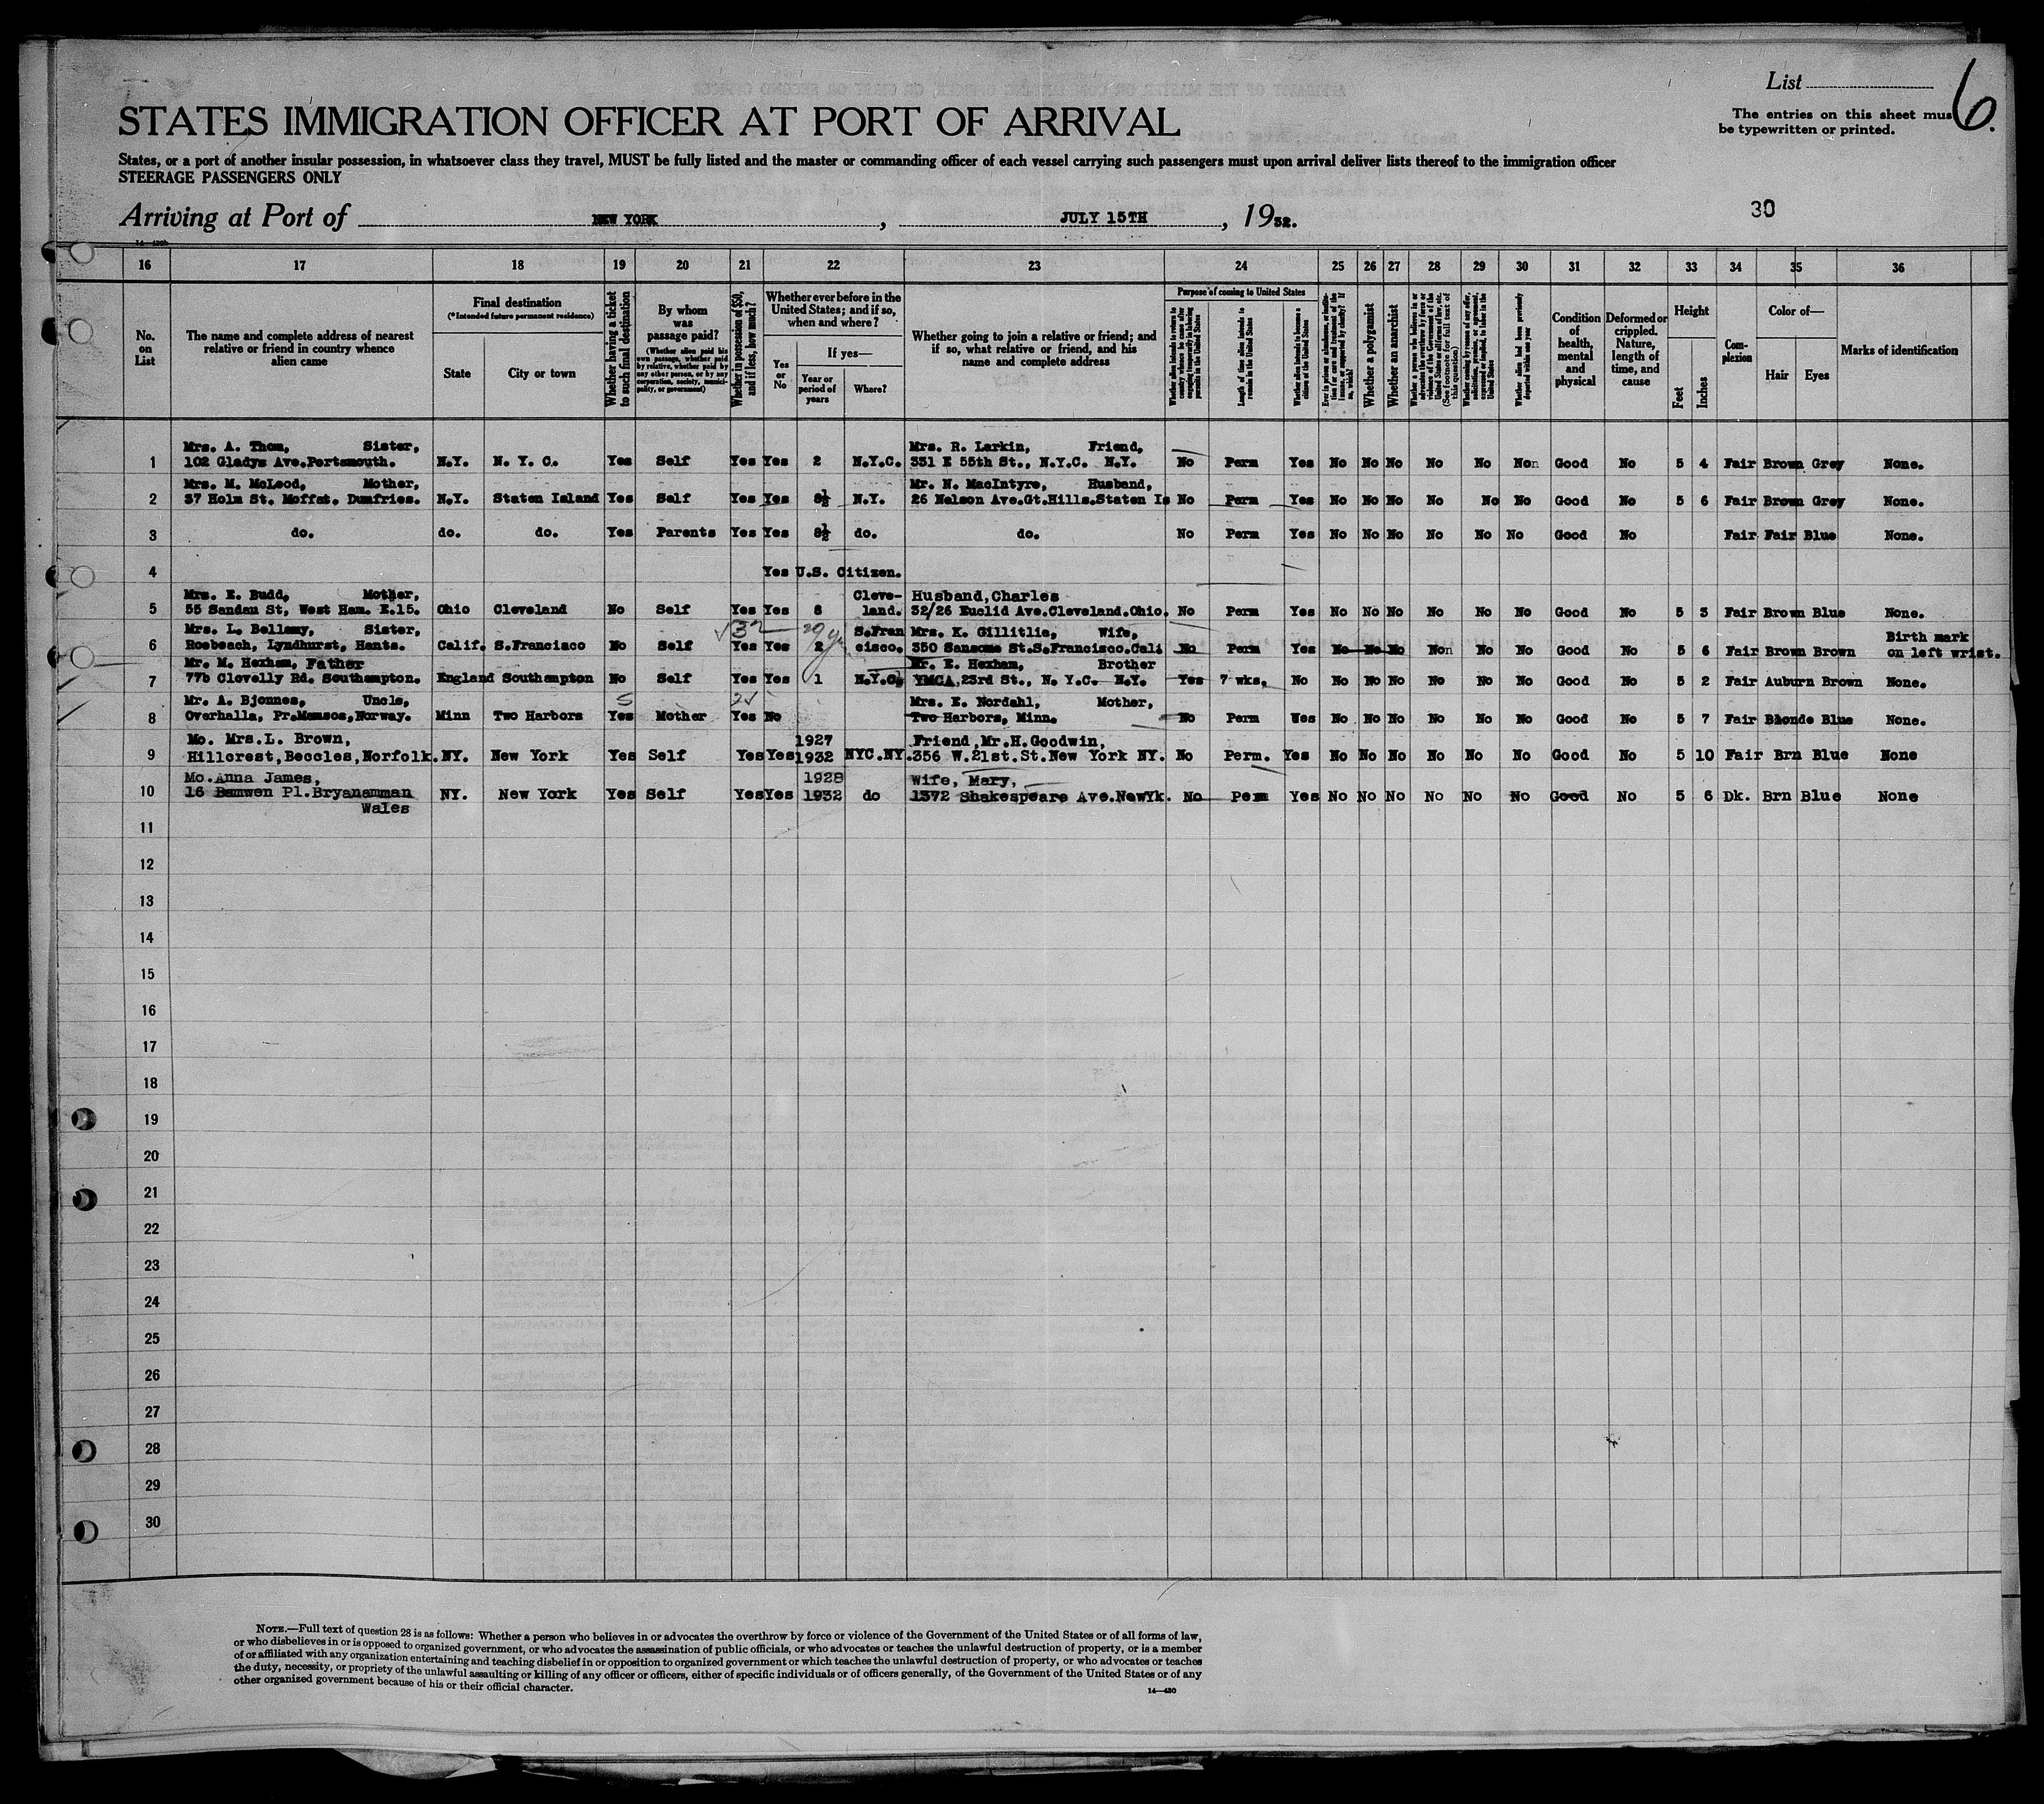 List
6.
The entries on this sheet must
be typewritten or printed.
STATES IMMIGRATION OFFICER AT PORT OF ARRIVAL
States, or a port of another insular possession, in whatsoever class they travel, MUST be fully listed and the master or commanding officer of each vessel carrying such passengers must upon arrival deliver lists thereof to the immigration officer
STEERAGE PASSENGERS ONLY
Arriving at Port of NEW YORK, JULY 15TH, 1932.
30
16 17 18 19 20 21 22 23 24 25 26 27 28 29 30 31 32 33 34 35 36
No. on List
The name and complete address of nearest relative or friend in country whence alien came
Final destination
(*Intended future permanent residence)
State
City or town
Whether having a ticket to such final destination
By whom was passage paid?
(Whether alien paid his own passage, whether paid by relative, whether paid by any other person, or by any corporation, society, municipality, or government)
Whether in possession of $50, and if less, how much?
Whether ever before in the United States; and if so, when and where?
Yes or No
If yes—
Year or period of years
Where?
Whether going to join a relative or friend; and if so, what relative or friend, and his name and complete address
Purpose of coming to United States
Whether alien intends to return to country whence he came after engaging temporarily in laboring pursuits in the United States
Length of time alien intends to remain in the United States
Whether alien intends to become a citizen of the United States
Ever in prison or almshouse, or institution for care and treatment of the insane, or supported by charity? If so, which?
Whether a polygamist
Whether an anarchist
Whether a person who believes in or advocates the overthrow by force or violence of the Government of the United States or all forms of law, etc. (See footnote for full text of this question)
Whether coming by reason of any offer, solicitation, promise, or agreement, expressed or implied, to labor in the United States
Whether alien had been previously deported within one year
Condition of health, mental and physical
Deformed or crippled. Nature, length of time, and cause
Height
Feet
Inches
Complexion
Color of—
Hair
Eyes
Marks of identification
Mrs. A. Thom, Sister, Mrs. R. Larkin, Friend,
1 102 Gladys Ave.Portsmouth. N.Y. N. Y. C. Yes Self Yes Yes 2 N.Y.C. 331 E 55th St., N.Y.C. N.Y. No Perm Yes No No No No No Non Good No 5 4 Fair Brown Grey None.
Mrs. M. McLeod, Mother, Mr. N. MacIntyre, Husband,
2 37 Holm St. Moffat. Dumfries. N.Y. Staten Island Yes Self Yes Yes 8½ N.Y. 26 Nelson Ave.Gt.Hills.Staten Is No Perm Yes No No No No No No Good No 5 6 Fair Brown Grey None.
3 do. do. do. Yes Parents Yes Yes 8½ do. do. No Perm Yes No No No No No No Good No Fair Fair Blue None.
4 Yes U.S. Citizen.
Mrs. E. Budd, Mother, Cleve- Husband, Charles
5 55 Sandau St, West Ham. E.15. Ohio Cleveland No Self Yes Yes 8 land. 32/26 Euclid Ave.Cleveland.Ohio. No Perm Yes No No No No No No Good No 5 3 Fair Brown Blue None.
Mrs. L. Bellamy, Sister, S.Fran Mrs. K. Gillitlie, Wife, Birth mark
6 Rosbeach, Lyndhurst, Hants. Calif. S.Francisco No Self Yes Yes 2 cisco. 350 Sansome St.S.Francisco.Cali No Perm Yes No No No Non No No Good No 5 6 Fair Brown Brown on left wrist.
Mr. M. Hexham, Father Mr. E. Hexham, Brother
7 77b Clovelly Rd. Southampton. England Southampton No Self Yes Yes 1 N.Y.C. YMCA,23rd St., N. Y.C. N.Y. Yes 7 wks. No No No No No No No Good No 5 2 Fair Auburn Brown None.
Mr. A. Bjonnes, Uncle, Mrs. E. Nordahl, Mother,
8 Overhalla, Pr.Namsos,Norway. Minn Two Harbors Yes Mother Yes No Two Harbors, Minn. No Perm Yes No No No No No No Good No 5 7 Fair Blonde Blue None.
Mo. Mrs.L. Brown, 1927 Friend,Mr.H.Goodwin,
9 Hillcrest,Beccles,Norfolk. NY. New York Yes Self Yes Yes 1932 NYC.NY. 356 W.21st.St.New York NY. No Perm. Yes No No No No No No Good No 5 10 Fair Brn Blue None
Mo.Anna James, 1928 Wife, Mary,
10 16 Bamwen Pl.Bryanamman NY. New York Yes Self Yes Yes 1932 do 1372 Shakespeare Ave.NewYk. No Perm Yes No No No No No No Good No 5 6 Dk. Brn Blue None
Wales
11
12
13
14
15
16
17
18
19
20
21
22
23
24
25
26
27
28
29
30
NOTE.—Full text of question 28 is as follows: Whether a person who believes in or advocates the overthrow by force or violence of the Government of the United States or of all forms of law,
or who disbelieves in or is opposed to organized government, or who advocates the assassination of public officials, or who advocates or teaches the unlawful destruction of property, or is a member
of or affiliated with any organization entertaining and teaching disbelief in or opposition to organized government or which teaches the unlawful destruction of property, or who advocates or teaches
the duty, necessity, or propriety of the unlawful assaulting or killing of any officer or officers, either of specific individuals or of officers generally, of the Government of the United States or of any
other organized government because of his or their official character.
14—430